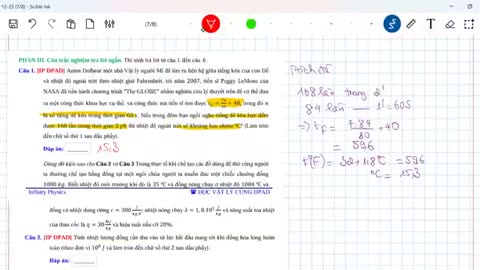 12-23 (7/8) - Suible Ink
(7/8)
PHẦN III. Câu trắc nghiệm trả lời ngắn. Thí sinh trả lời từ câu 1 đến câu 6
Câu 1. [IP DPAD] Amos Dolbear một nhà Vật lý người Mĩ đã tìm ra liên hệ giữa tiếng kêu của con Dế
và nhiệt độ ngoài trời theo nhiệt giai Fahrenheit, tới năm 2007, tiến sĩ Peggy LeMone của
NASA đã tiến hành chương trình "The GLOBE" nhằm nghiên cứu lý thuyết trên để có thể đưa
ra một công thức khoa học cụ thể, và công thức mà tiến sĩ tìm được
+ 40, trong đó n
là số tiếng dế kêu trong thời gian 60 s. Nếu trong đêm bạn ngồi nghe tiếng dế kêu bạn đếm
được 168 lần trong thời gian 2 ph thì nhiệt độ ngoài trời sẽ khoảng bao nhiêu °C? (Làm tròn
đến chữ số thứ 1 sau dấu phẩy).
Đáp án: 15,3
Dùng dữ kiện sau cho Câu 2 và Câu 3 Trong thực tế khi chế tạo các đồ dùng để thờ cúng người
ta thường chế tạo bằng đồng tại một ngôi chùa người ta muốn đúc một chiếc chuông đồng
1000 kg. Biết nhiệt độ môi trường khi đó là 35 °C và đồng nóng chảy ở nhiệt độ 1084 °C và
Infinity Physics HỌC VẬT LÝ CÙNG DPAD
đồng có nhiệt dung riêng c = 380 J/kg.K; nhiệt nóng chảy λ = 1,8.10⁵ J/kg và năng suất tỏa nhiệt
của than cốc là q = 30 MJ/kg và hiệu suất nấu cỡ 20%.
Câu 2. [IP DPAD] Tính nhiệt lượng đồng cần thu vào từ lúc bắt đầu nung tới khi đồng hóa lỏng hoàn
toàn (theo đơn vị 10⁸ J và làm tròn đến chữ số thứ 2 sau dấu phẩy).
Đáp án:
168 lần trong 2'
84 lần — 1' = 60s
+ 40
= 59,6
t°(F) = 32 + 1,8°C = 59,6
°C = 15,3